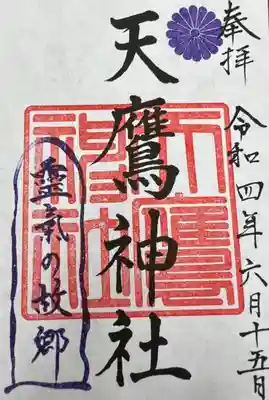 奉拝
令和四年六月十五日
天鷹神社
霊氣の故郷
天鷹神社